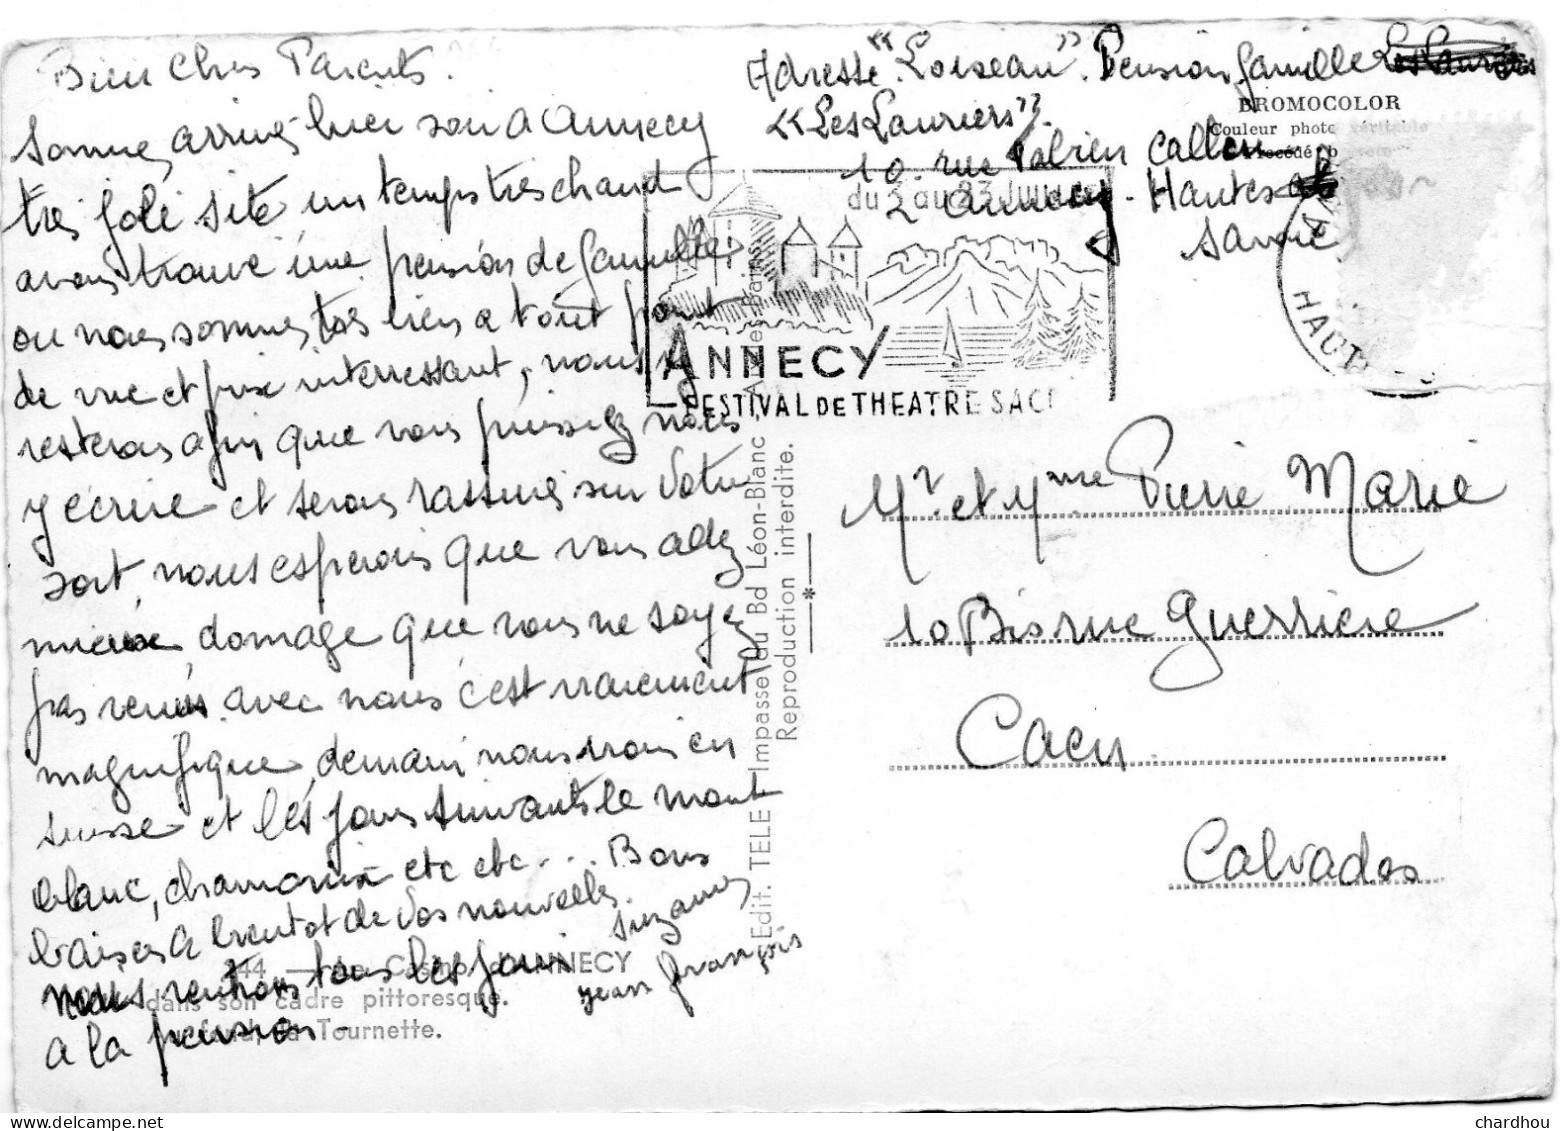 Bien Chers Parents.
Sommes arrivés hier soir a Annecy
très joli site un temps très chaud
avons trouvé une pension de famille
ou nous sommes très bien a tout point
de vue et prix interressant, nous y
resterons afin que vous puissiez nous
y écrire et serons rassurés sur votre
sort, nous esperons que vous allez
mieux, domage que vous ne soyez
pas venus avec nous c'est vraiement
magnifique, demain nous irons en
suisse et les jours suivants le mont
blanc, chamonix etc etc... Bons
baisers a bientot de vos nouvelles.
Suzanne
Jean François
nous rentrons tous les jours
a la pension.
344 — Le Casino d'ANNECY
dans son cadre pittoresque.
La Tournette.
Edit. TELE Impasse du Bd Léon-Blanc Aix-les-Bains
Reproduction interdite.
Adresse "Loiseau". Pension famille
"Les Lauriers".
10. rue Calliès
Annecy - Hautes
Savoie
BROMOCOLOR
Couleur photo véritable
Procédé
du 2 au 23 Juillet
ANNECY
FESTIVAL DE THEATRE SACR
HAUTE
Mr et Mme Pierre Marie
10 Bis rue Guerriere
Caen
Calvados
chardhou